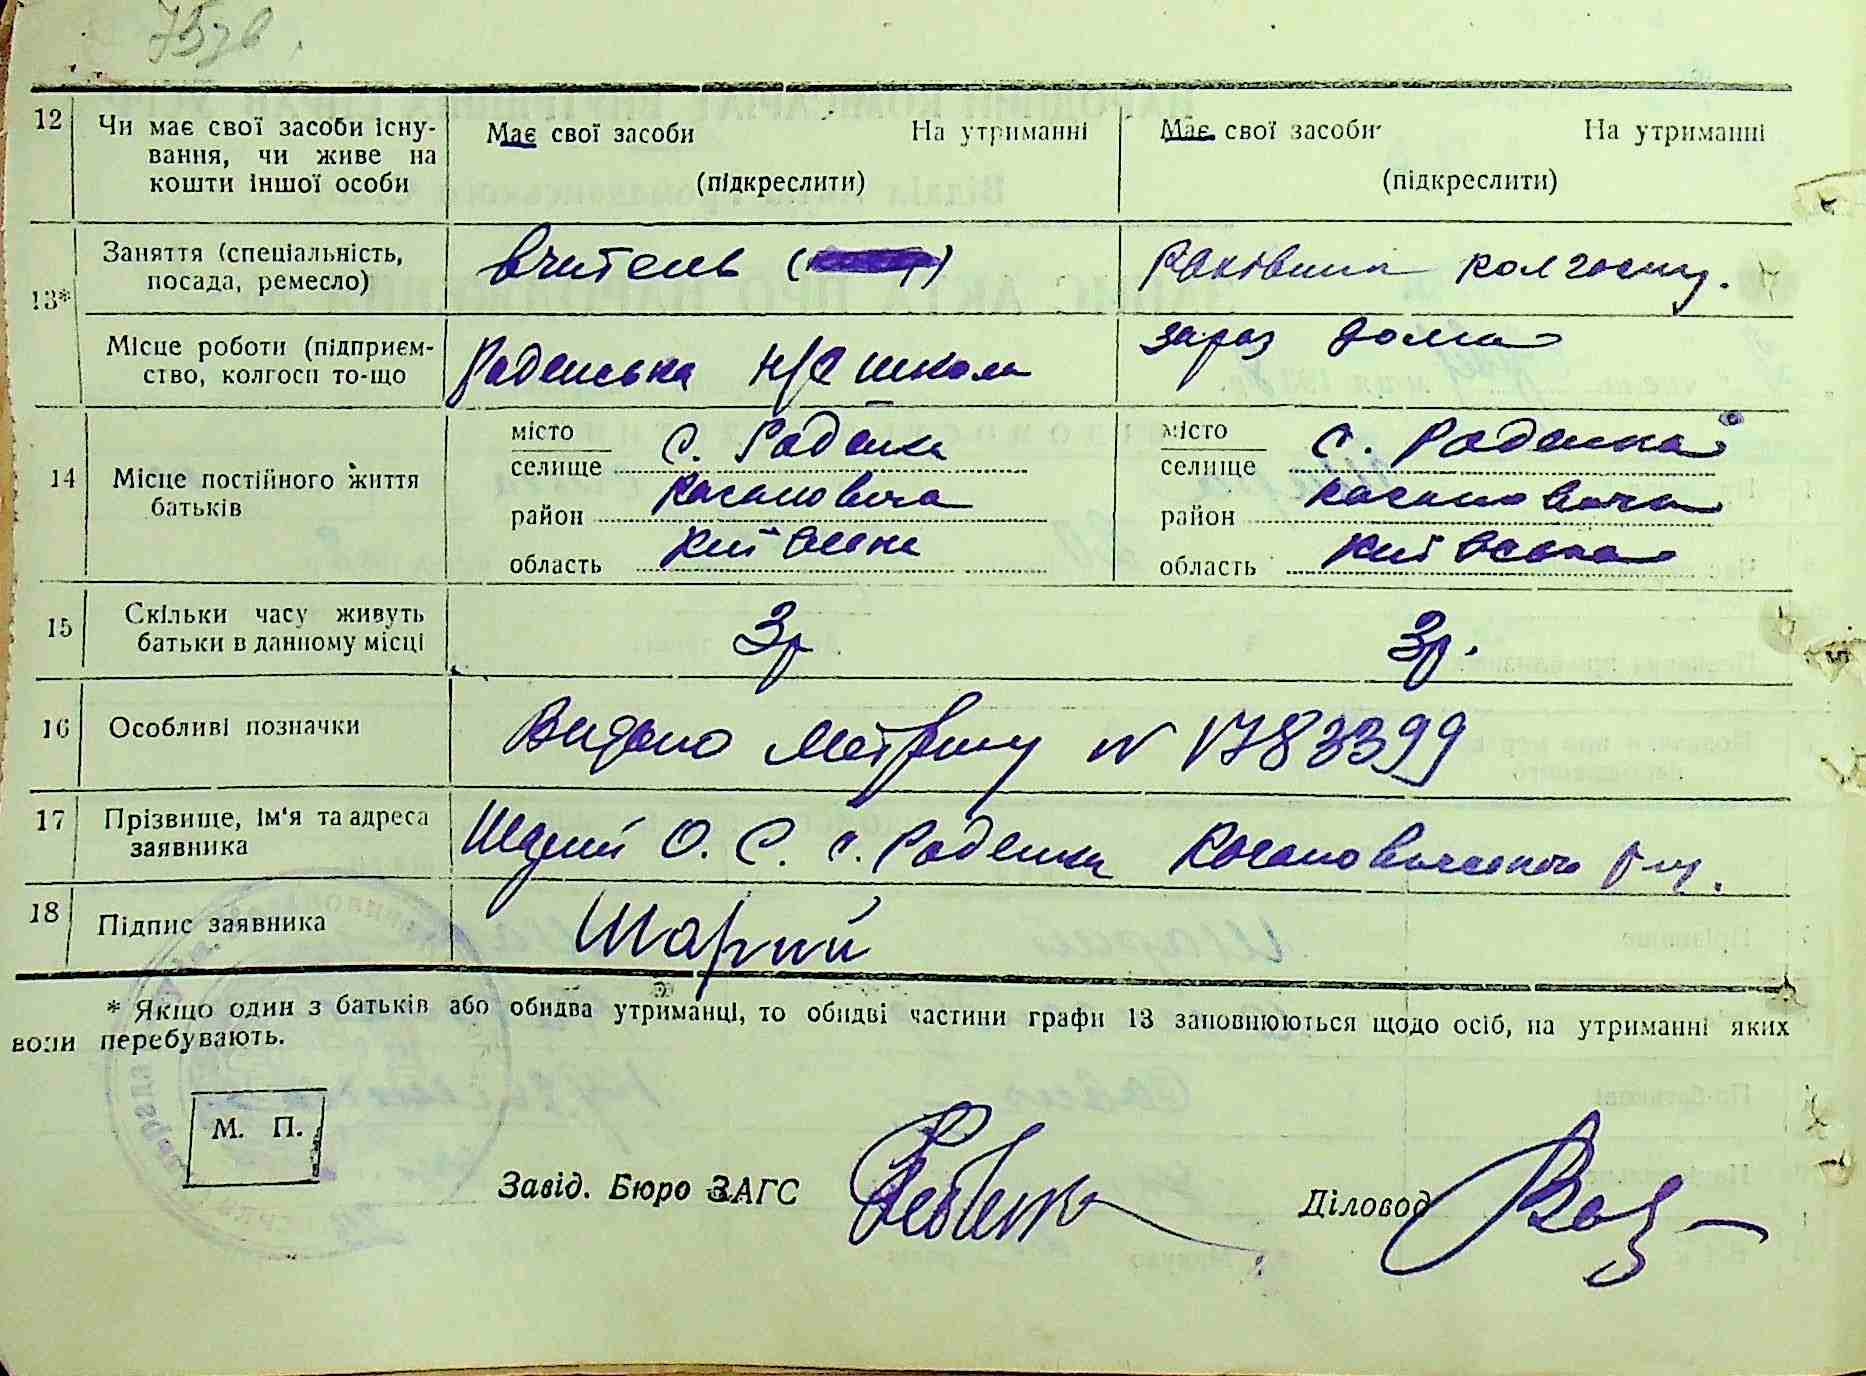 75зв.
12 Чи має свої засоби існу-
вання, чи живе на
кошти іншої особи
Має свої засоби На утриманні
(підкреслити)
Має свої засоби На утриманні
(підкреслити)
13* Заняття (спеціальність,
посада, ремесло)
вчитель
колгоспу.
Місце роботи (підприєм-
ство, колгосп то-що
Раденська н/с школа
зараз дома
14 Місце постійного життя
батьків
місто
селище с. Раденка
район Кагановича
область Київська
місто
селище с. Раденка
район Кагановича
область Київська
15 Скільки часу живуть
батьки в данному місці
3р
3р.
16 Особливі позначки
Видано метрику № 1783399
17 Прізвище, ім'я та адреса
заявника
Шарий О. С. с. Раденка Кагановицького р-ну.
18 Підпис заявника
Шарий
* Якщо один з батьків або обидва утриманці, то обидві частини графи 13 заповнюються щодо осіб, на утриманні яких
вони перебувають.
М. П.
Завід. Бюро ЗАГС
Діловод